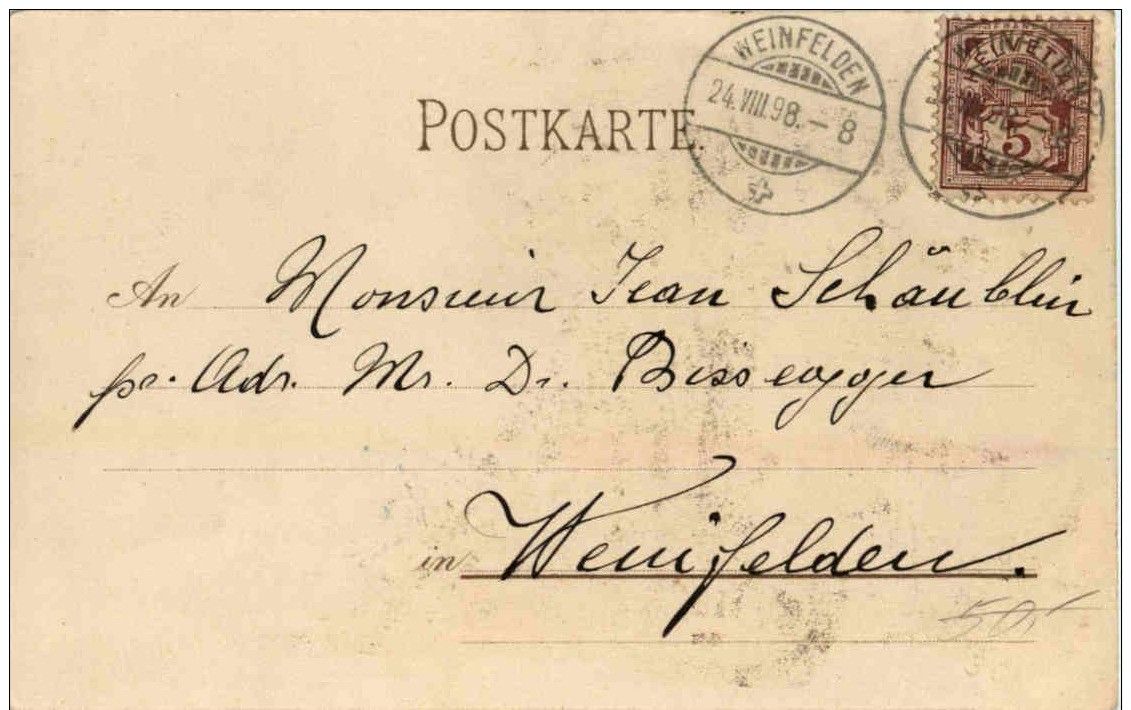 POSTKARTE.
WEINFELDEN
24.VIII.98.–8
5
An Monsieur Jean Schäublin
pr. Adr. Mr. Dr. Bissegger
in Weinfelden.
50.